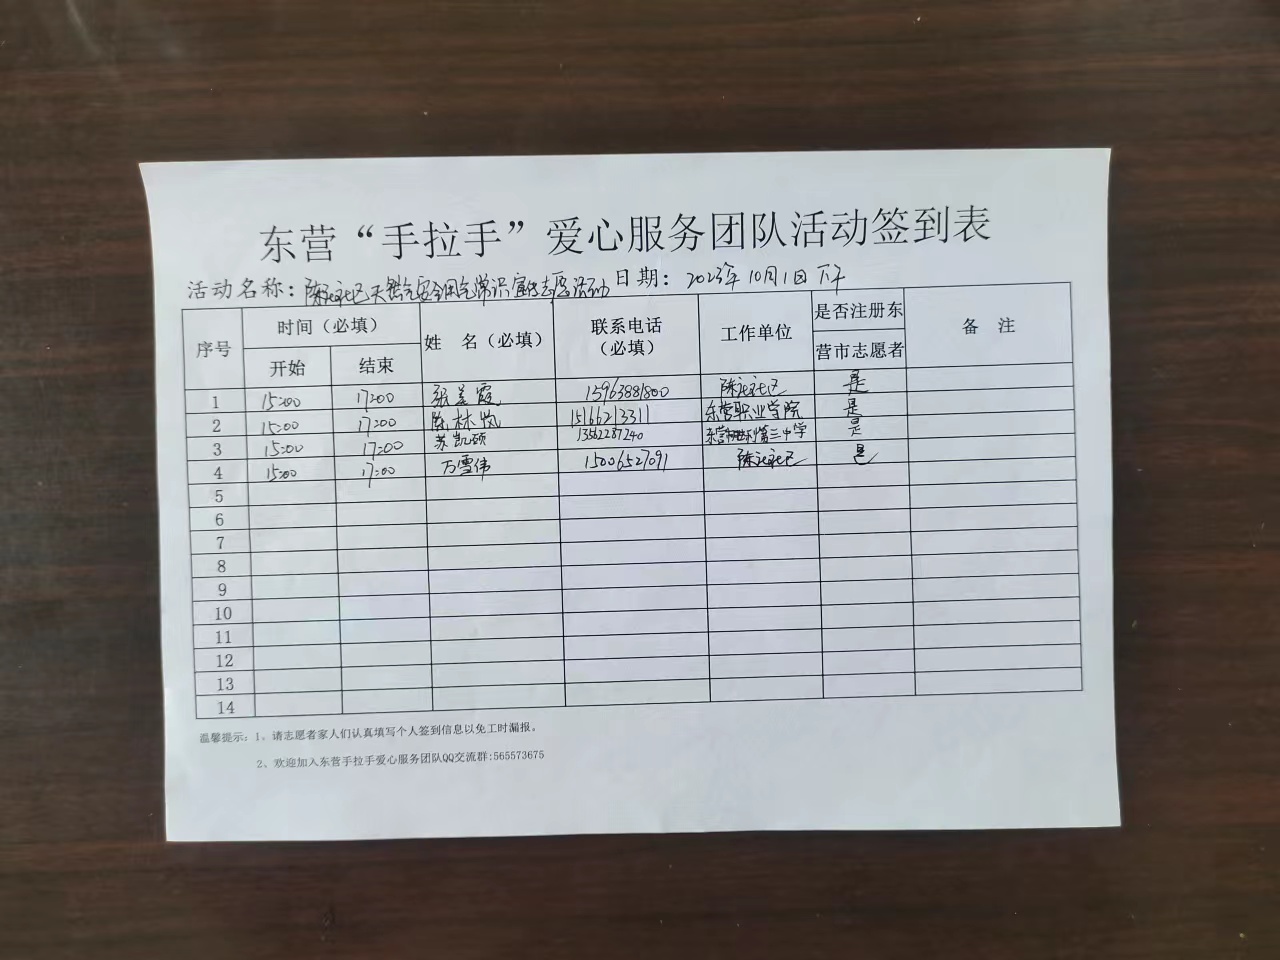 东营“手拉手”爱心服务团队活动签到表
活动名称：社区天然气安全用气常识宣传志愿活动 日期：2023年10月1日下午
序号 时间（必填） 姓 名（必填） 联系电话（必填） 工作单位 是否注册东营市志愿者 备 注
开始 结束
1 15:00 17:00 张美霞 15963881800 社区 是
2 15:00 17:00 陈林岚 15166213311 东营职业学院 是
3 15:00 17:00 苏凯硕 13562287240 东营第三中学 是
4 15:00 17:00 万雪伟 15006527091 社区 是
5
6
7
8
9
10
11
12
13
14
温馨提示：1、请志愿者家人们认真填写个人签到信息以免工时漏报。
2、欢迎加入东营手拉手爱心服务团队QQ交流群:565573675